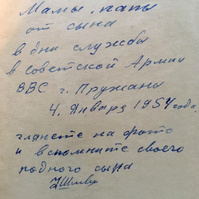 Мамы, папы
от сына
в дни службы
в советской Армии
ВВС г. Пружаны
4. Января 1954 года,
гляньте на фото
и вспомните своего
родного сына